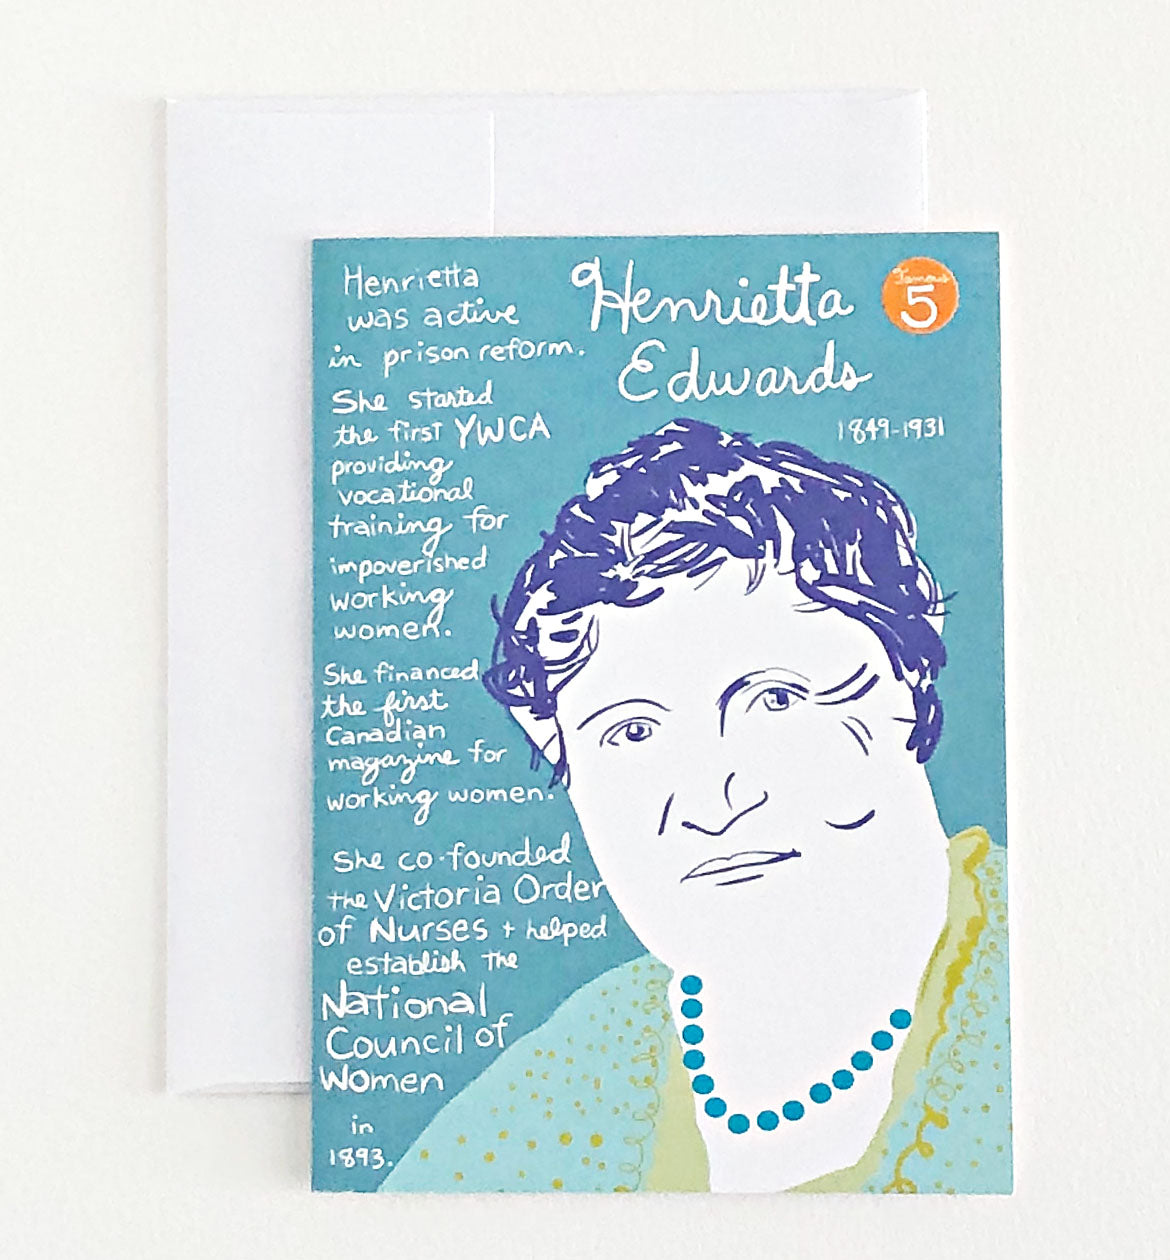 Henrietta
Edwards
1849-1931
Famous
5
Henrietta
was active
in prison reform.
She started
the first YWCA
providing
vocational
training for
impoverished
working
women.
She financed
the first
Canadian
magazine for
working women.
She co-founded
the Victoria Order
of Nurses + helped
establish the
National
Council of
Women
in
1893.